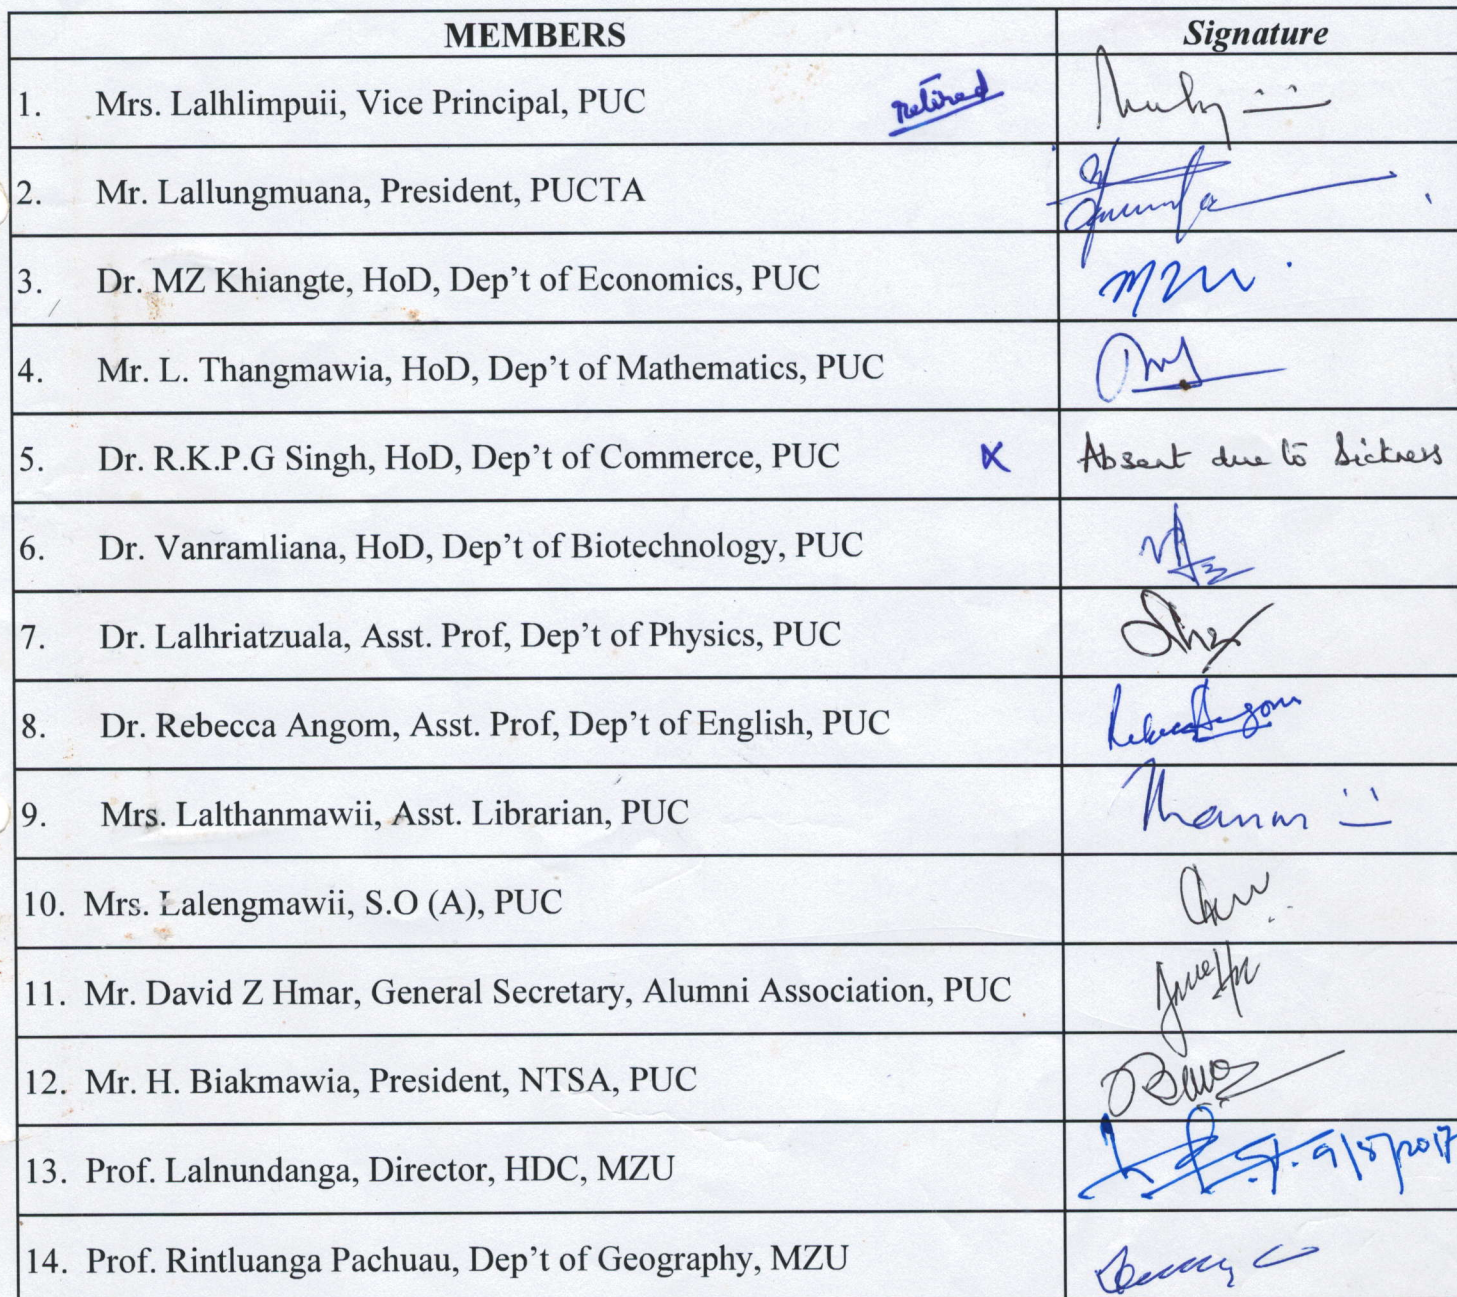 MEMBERS Signature
1. Mrs. Lalhlimpuii, Vice Principal, PUC retired
2. Mr. Lallungmuana, President, PUCTA
3. Dr. MZ Khiangte, HoD, Dep't of Economics, PUC
4. Mr. L. Thangmawia, HoD, Dep't of Mathematics, PUC
5. Dr. R.K.P.G Singh, HoD, Dep't of Commerce, PUC x Absent due to Sickness
6. Dr. Vanramliana, HoD, Dep't of Biotechnology, PUC
7. Dr. Lalhriatzuala, Asst. Prof, Dep't of Physics, PUC
8. Dr. Rebecca Angom, Asst. Prof, Dep't of English, PUC Rebecca Angom
9. Mrs. Lalthanmawii, Asst. Librarian, PUC
10. Mrs. Lalengmawii, S.O (A), PUC
11. Mr. David Z Hmar, General Secretary, Alumni Association, PUC
12. Mr. H. Biakmawia, President, NTSA, PUC
13. Prof. Lalnundanga, Director, HDC, MZU 9/8/2017
14. Prof. Rintluanga Pachuau, Dep't of Geography, MZU